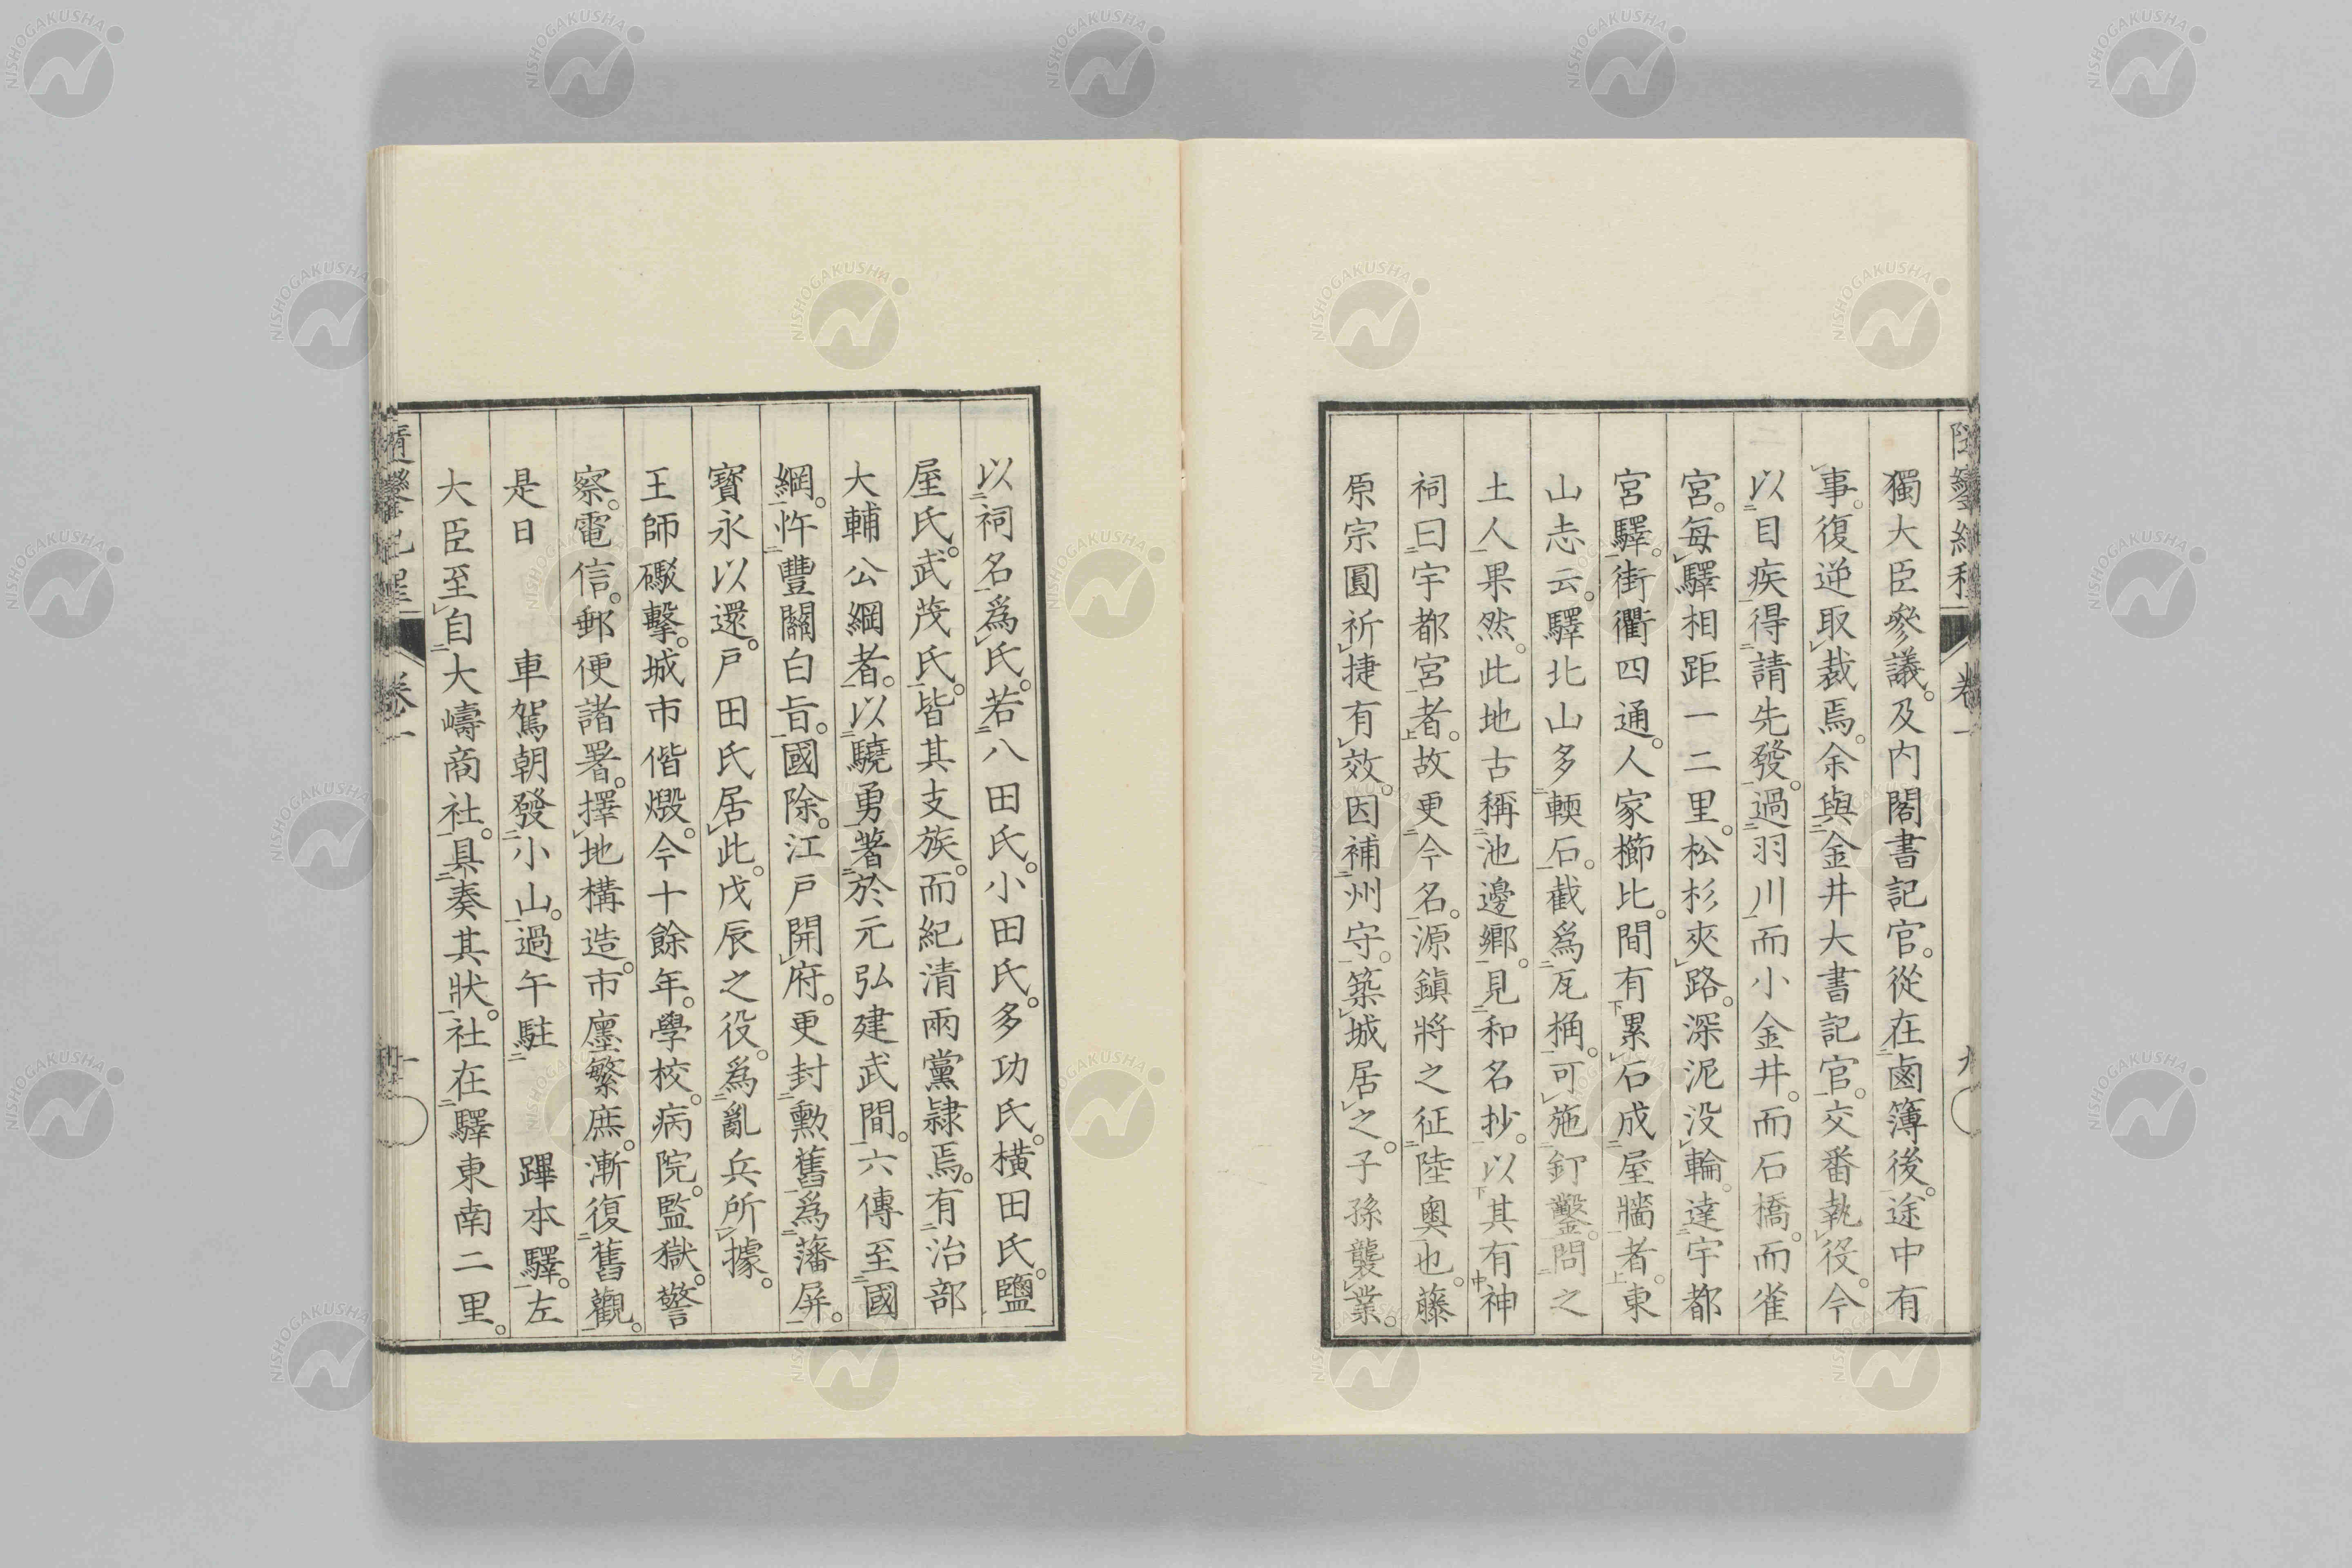 獨大臣參議。及内閣書記官。從在鹵簿後。途中有
事。復逆取裁焉。余與金井大書記官。交番執役。今
以目疾得請先發。過羽川而小金井。而石橋。而雀
宮。每驛相距一二里。松杉夾路。深泥没輪。達宇都
宮驛。街衢四通。人家櫛比。間有累石成屋牆者。東
山志云。驛北山多輭石。截爲瓦桷。可施釘鑿。問之
土人果然。此地古稱池邊鄉。見和名抄。以其有神
祠曰宇都宮者。故更今名。源鎮將之征陸奧也。藤
原宗圓祈捷有效。因補州守。築城居之。子孫襲業。
以祠名爲氏。若八田氏。小田氏。多功氏。橫田氏。鹽
屋氏。武茂氏。皆其支族。而紀清兩黨隷焉。有治部
大輔公綱者。以驍勇著於元弘建武間。六傳至國
綱。忤豐關白旨。國除。江戸開府。更封勲舊爲藩屏。
寶永以還。戸田氏居此。戊辰之役。爲亂兵所據。
王師礮擊。城市偕燬。今十餘年。學校。病院。監獄。警
察。電信。郵便諸署。擇地構造。市廛繁庶。漸復舊觀。
是日車駕朝發小山。過午駐蹕本驛。左
大臣至自大嶹商社。具奏其狀。社在驛東南二里。
隨鑾紀程 卷一